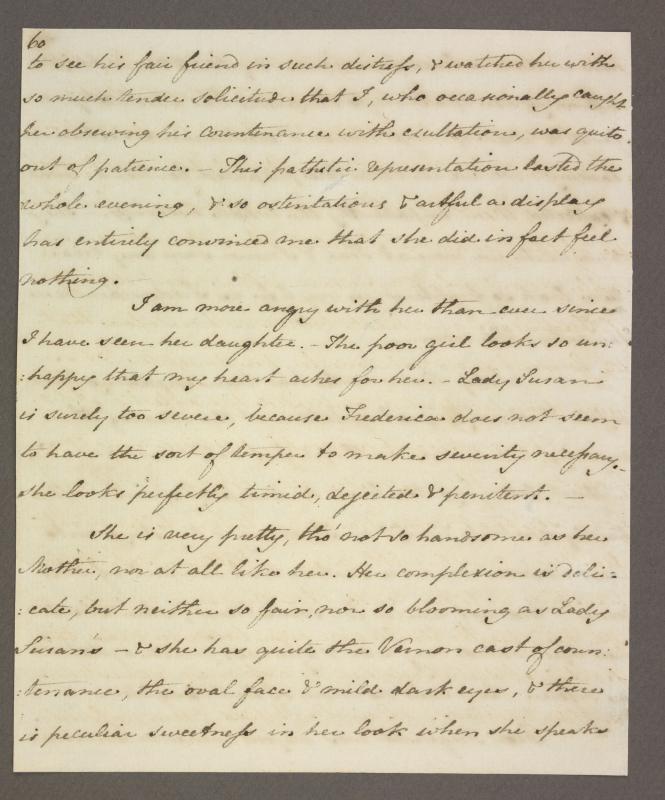 60
to see his fair friend in such distress, & watched her with
so much tender solicitude that I, who occasionally caught
her observing his countenance with exultation, was quite
out of patience. – This pathetic representation lasted the
whole evening, & so ostentatious & artful a display
has entirely convinced me that she did in fact feel
nothing.
I am more angry with her than ever since
I have seen her daughter. – The poor girl looks so un:
:happy that my heart aches for her. – Lady Susan
is surely too severe, because Frederica does not seem
to have the sort of temper to make severity necessary. –
She looks perfectly timid, dejected & penitent. –
She is very pretty, tho' not so handsome as her
Mother, nor at all like her. Her complexion is deli:
:cate, but neither so fair, nor so blooming as Lady
Susan's – & she has quite the Vernon cast of coun:
:tenance, the oval face & mild dark eyes, & there
is peculiar sweetness in her look when she speaks